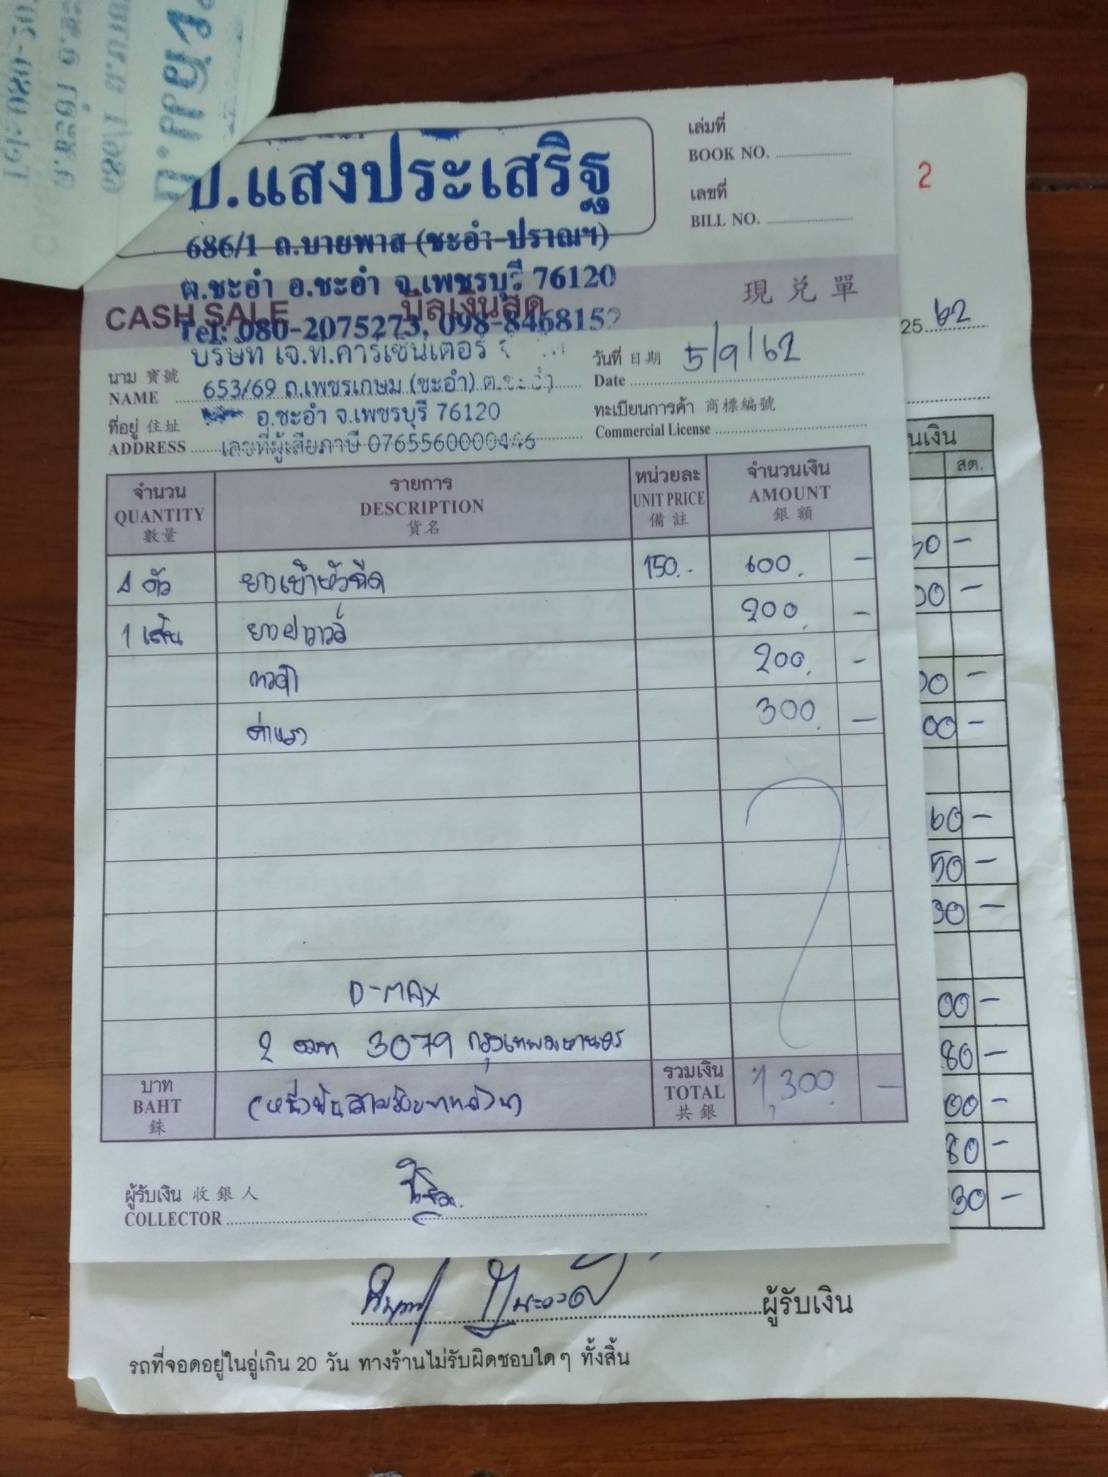 ป.แสงประเสริฐ
686/1 ถ.บายพาส (ชะอำ-ปราณฯ)
ต.ชะอำ อ.ชะอำ จ.เพชรบุรี 76120
Tel: 080-2075273, 098-8468152
เล่มที่
BOOK NO.
เลขที่
BILL NO.
2
CASH SALE บิลเงินสด 現兌單
2562
บริษัท เจ.ที.คาร์เซ็นเตอร์
653/69 ถ.เพชรเกษม (ชะอำ) ต.ชะอำ
อ.ชะอำ จ.เพชรบุรี 76120
เลขที่ผู้เสียภาษี 0765560000446
นาม 寶號
NAME
ที่อยู่ 住址
ADDRESS
วันที่ 日期 5/9/62
Date
ทะเบียนการค้า 商標編號
Commercial License
จำนวน รายการ หน่วยละ จำนวนเงิน
QUANTITY DESCRIPTION UNIT PRICE AMOUNT
數量 貨名 備註 銀額
4 ตัว ยางเบ้าหัวฉีด 150.- 600. -
1 เส้น ยางฝาวาล์ว 200. -
200. -
ค่าแรง 300. -
D-MAX
3079 กรุงเทพมหานคร
บาท (หนึ่งพันสามร้อยบาทถ้วน) รวมเงิน
BAHT TOTAL 1,300 -
銖 共銀
ผู้รับเงิน 收銀人
COLLECTOR
นเงิน
สต.
50 -
00 -
00 -
00 -
60 -
50 -
30 -
00 -
80 -
00 -
80 -
30 -
ผู้รับเงิน
รถที่จอดอยู่ในอู่เกิน 20 วัน ทางร้านไม่รับผิดชอบใดๆ ทั้งสิ้น